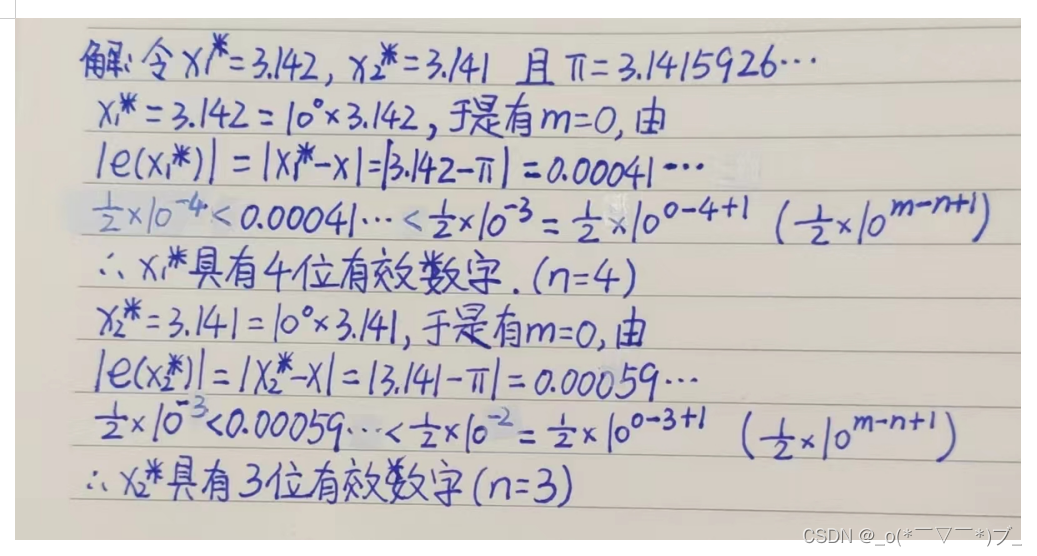 解:令x₁*=3.142, x₂*=3.141 且 π=3.1415926…
x₁*=3.142=10⁰×3.142,于是有m=0,由
|e(x₁*)|=|x₁*-x|=|3.142-π|=0.00041…
½×10⁻⁴<0.00041…<½×10⁻³=½×10⁰⁻⁴⁺¹ (½×10^{m-n+1})
∴x₁*具有4位有效数字.(n=4)
x₂*=3.141=10⁰×3.141,于是有m=0,由
|e(x₂*)|=|x₂*-x|=|3.141-π|=0.00059…
½×10⁻³<0.00059…<½×10⁻²=½×10⁰⁻³⁺¹ (½×10^{m-n+1})
∴x₂*具有3位有效数字(n=3)
CSDN @_o(*￣▽￣*)ブ_